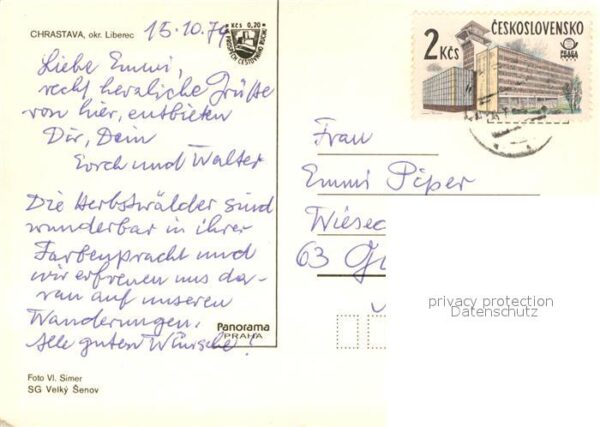 CHRASTAVA, okr. Liberec
15.10.79
Kčs 0,20
PŘÍSPĚVEK CESTOVNÍHO RUCHU
Liebe Emmi,
recht herzliche Grüße
von hier, entbieten
Dir, Dein
und Walter
Die Herbstwälder sind
wunderbar in ihrer
Farbenpracht und
wir erfreuen uns da-
ran auf unseren
Wanderungen.
Alle guten Wünsche!
Panorama
PRAHA
Foto Vl. Simer
SG Velký Šenov
ČESKOSLOVENSKO
2 Kčs
PRAGA
Frau
Emmi Piper
Wiesec
63 Gi
privacy protection
Datenschutz